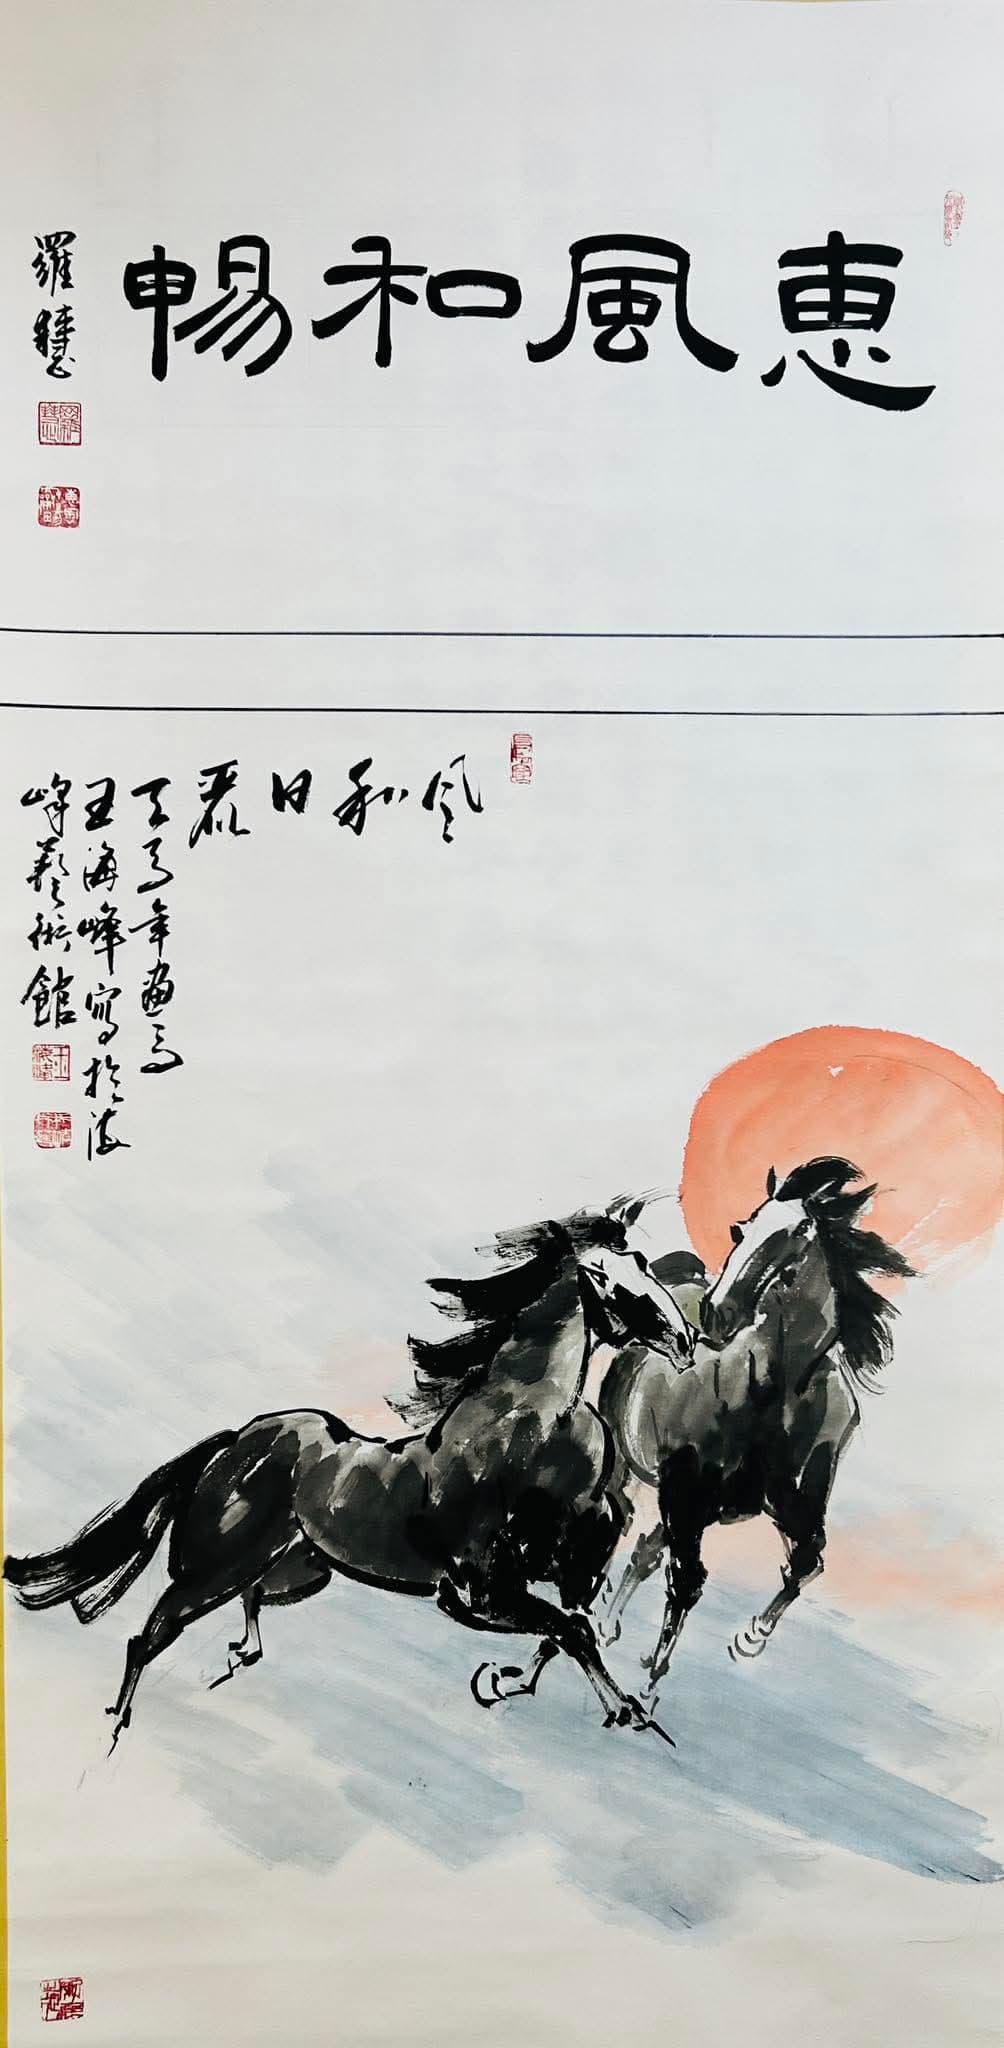 惠風和暢
羅
風和日麗
馬年畫馬
王海峰寫於海
峰藝術館